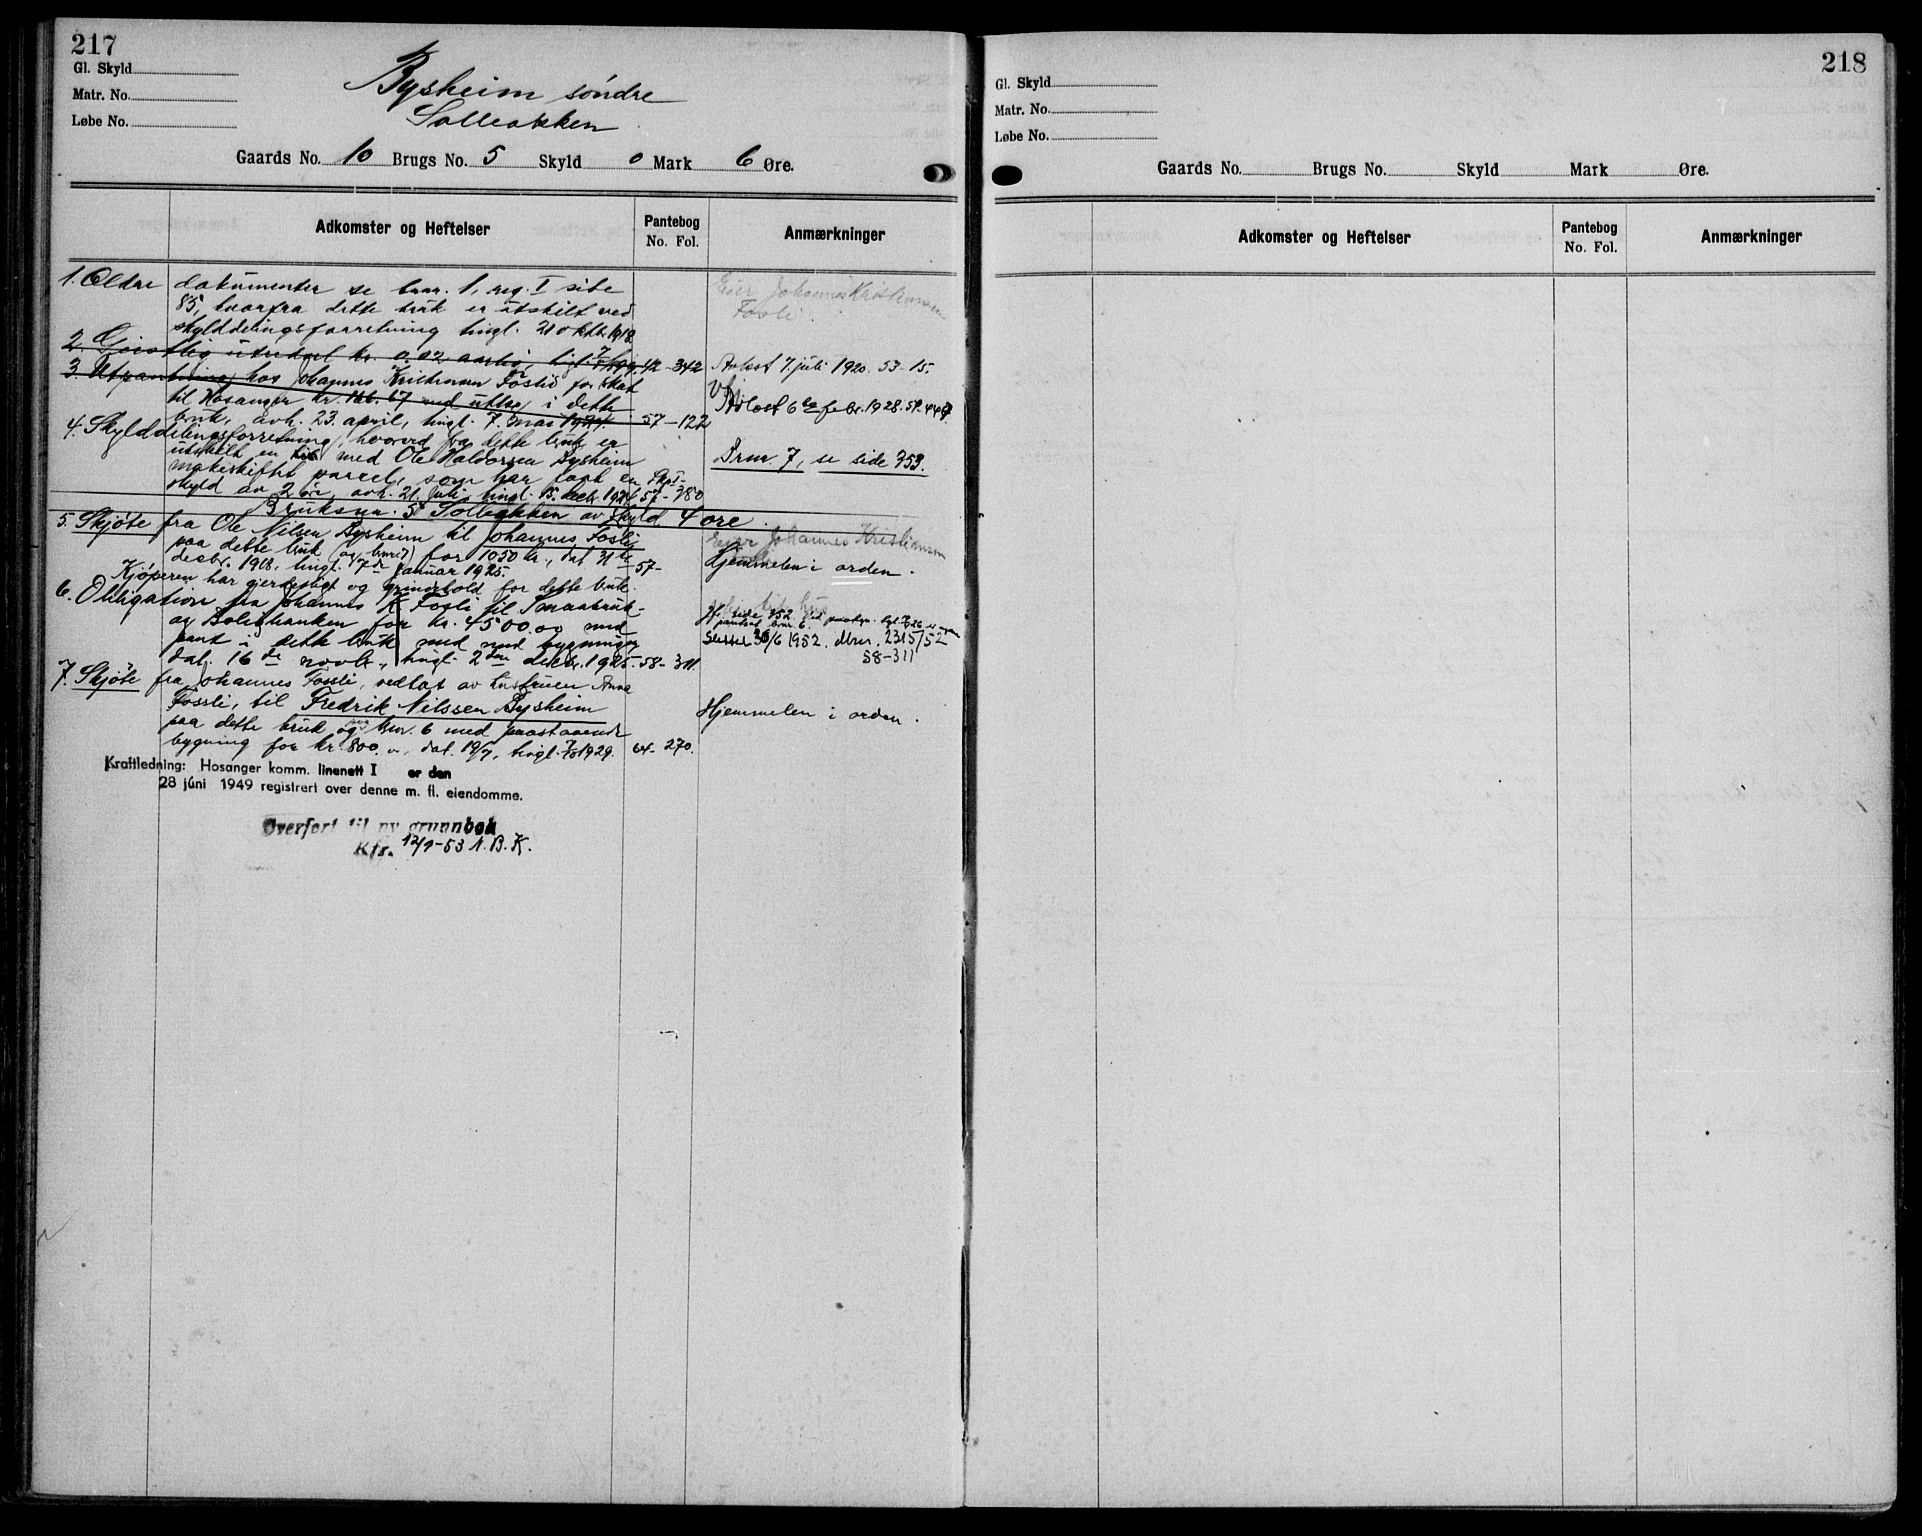 217
Gl. Skyld
Matr. No.
Løbe No.
Bysheim søndre
Solbakken
Gaards No. 10 Brugs No. 5 Skyld 0 Mark 6 Øre.
Adkomster og Heftelser
Pantebog
No. Fol.
Anmærkninger
1. Eldre dokumenter se bnr. 1, reg. I side
85, hvorfra dette bruk er utskilt ved
skylddelingsforretning tingl. 21 oktbr. 1918.
Eier Johannes Kristiansen
Fosli.
2. Geistlig utredsel kr. 0.02 aarlig, tingl. 42-342
Avløst 7. juli 1920. 53-15.
3. Utpantning hos Johannes Kristensen Foslid for skat
til Hosanger kr. 166.67 med utlæg i dette
bruk, avh. 23. april, tingl. 7. mai 1924. 57-122
Avløst 6te febr. 1928. 59.
4. Skylddelingsforretning, hvorved fra dette bruk er
utskilt en med Ole Haldorsen Bysheim
makeskiftet parcel, som har faat en
skyld av 2 øre, avh. 21. juli, tingl. 15. decbr. 1924 57-380
Brnr. 7, se side 353.
Bruksnr. 5 Solbakken av skyld 4 øre.
5. Skjøte fra Ole Nilsen Bysheim til Johannes Fosli
paa dette bruk (og bnr. 6) for 1050 kr., dat 31te
decbr. 1918, tingl. 7de januar 1925. 57-
Kjøperen har gjerdepligt og grindehold for dette bruk.
Eier Johannes Kristiansen
Hjemmelen i orden.
6. Obligation fra Johannes K. Fosli til Smaabruk-
og Boligbanken for kr. 4500.00 med
pant i dette bruk med bygninger
dat. 16de novbr., tingl. 2den decbr. 1925. 58-311.
Slettet 30/6 1952. dbnr. 2315/52
58-311
7. Skjøte fra Johannes Fossli, vedtat av hustruen Anna
Fossli, til Fredrik Nilssen Bysheim
paa dette bruk og bnr. 6 med paastaaende
bygning for kr. 800.00, dat. 19/7, tingl. 1929. 64-270.
Hjemmelen i orden.
Kraftledning: Hosanger komm. linenett I er den
28 júni 1949 registrert over denne m. fl. eiendomme.
Overført til ny grunnbok
Kfr. 12/1-53 N.B.K.
218
Gl. Skyld
Matr. No.
Løbe No.
Gaards No. Brugs No. Skyld Mark Øre.
Adkomster og Heftelser
Pantebog
No. Fol.
Anmærkninger